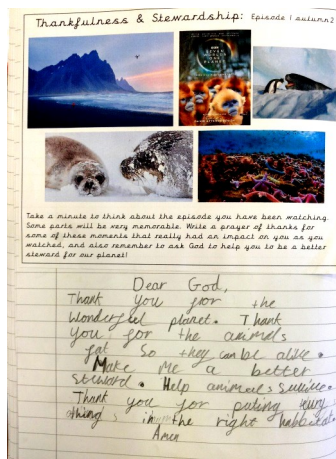 Thankfulness & Stewardship: Episode 1 autumn2
SEVEN
WORLDS
ONE
PLANET
Take a minute to think about the episode you have been watching.
Some parts will be very memorable. Write a prayer of thanks for
some of these moments that really had an impact on you as you
watched, and also remember to ask God to help you to be a better
steward for our planet!
Dear God,
Thank you for the
wonderful planet. Thank
you for the animels
fat so they can be alive.
Make me a better
steward. Help animels
Thank you for puting
thing in the right
Amen